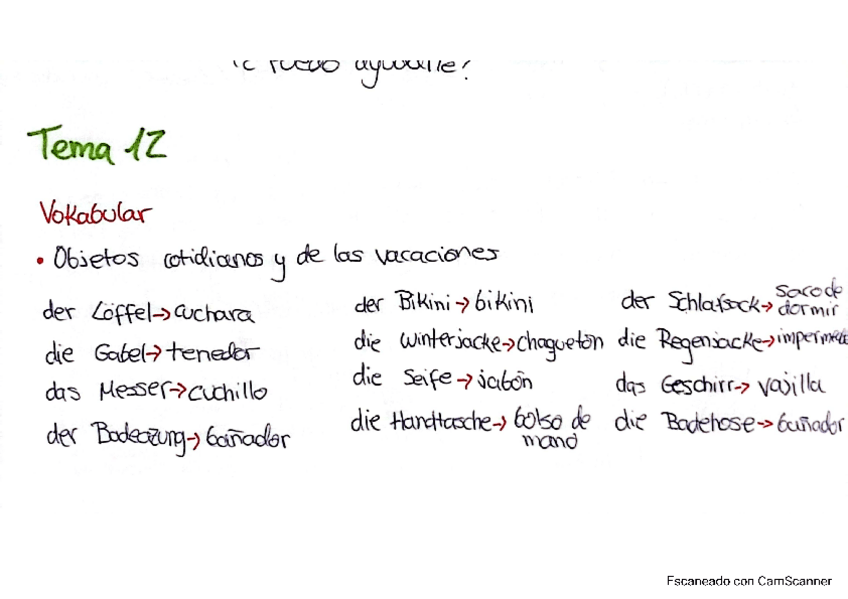 Tema 12
Vokabular
• Objetos cotidianos y de las vacaciones
der Löffel→cuchara
die Gabel→tenedor
das Messer→cuchillo
der Badeazung→bañador
der Bikini→bikini
die Winterjacke→chaquetón
die Seife→jabón
die Handtasche→bolso de
mano
der Schlafsack→saco de
dormir
die Regenjacke→imperme
das Geschirr→vajilla
die Badehose→bañador
Escaneado con CamScanner